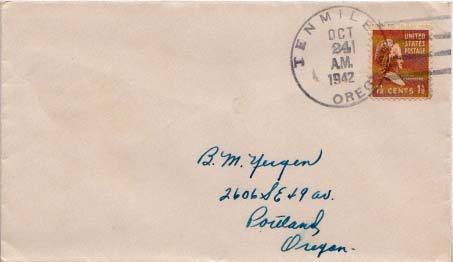 TENMILE
OCT
24
A.M.
1942
OREG
UNITED
STATES
POSTAGE
1½ CENTS 1½
B. M. Yergen
2606 SE 49 av.
Portland,
Oregon.